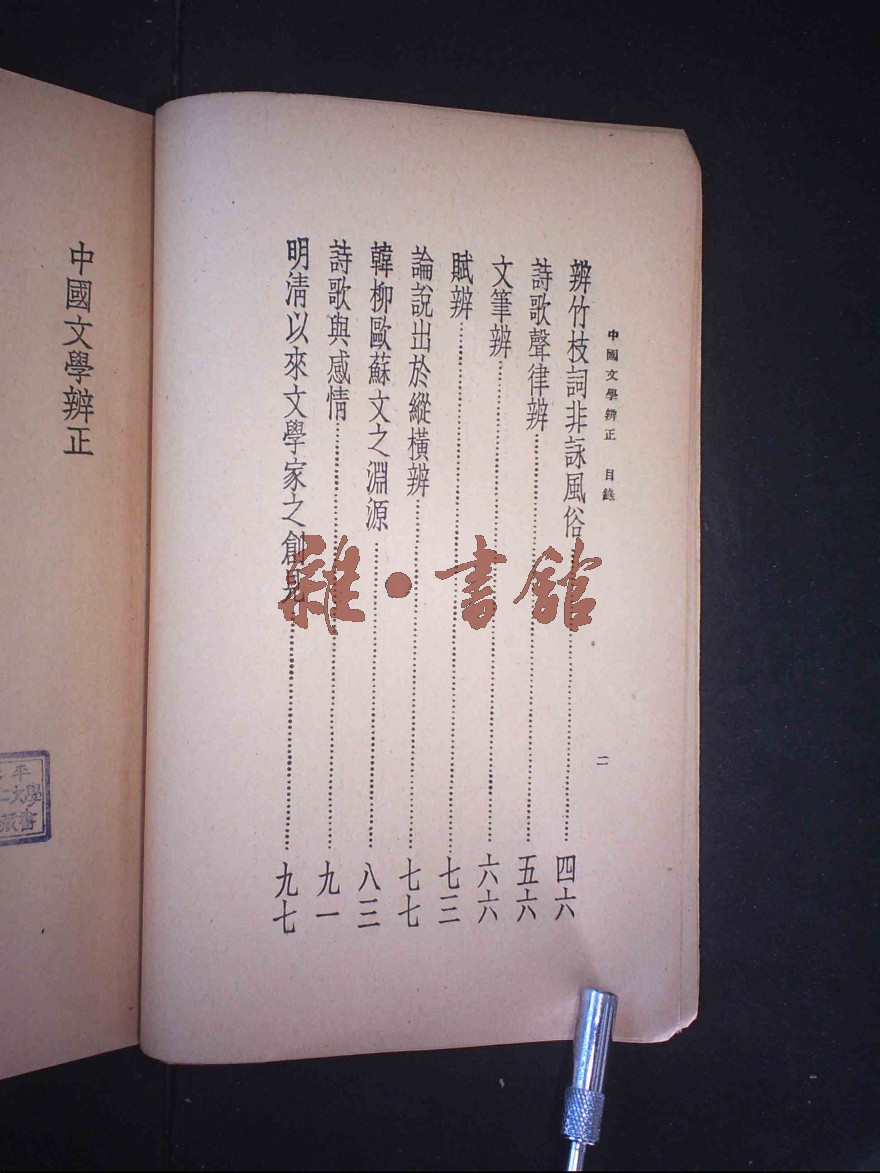 中國文學辨正　目錄
二
辨竹枝詞非詠風俗………四六
詩歌聲律辨………五六
文筆辨………六六
賦辨………七三
論說出於縱橫辨………七七
韓柳歐蘇文之淵源………八三
詩歌與感情………九一
明清以來文學家之創見………九七
雜·書館
中國文學辨正
平
大學
藏書